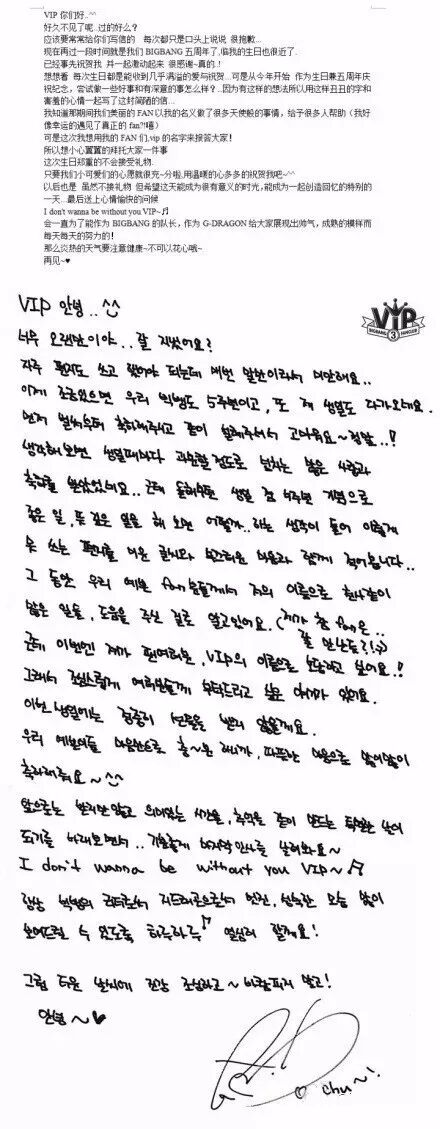 VIP 你们好..^^
好久不见了呢..过的好么?
应该要常常给你们写信的 每次都只是口头上说说 很抱歉...
现在再过一段时间就是我们 BIGBANG 五周年了.临我的生日也很近了.
已经事先祝贺我 并一起激动起来 很感谢~真的.!
想想看 每次生日都是能收到几乎满溢的爱与祝贺...可是从今年开始 作为生日兼五周年庆
祝纪念，尝试做一些好事和有深意的事怎么样?..因为有这样的想法所以用这样丑丑的字和
害羞的心情一起写了这封简陋的信...
我知道那期间我们美丽的 FAN 以我的名义做了很多天使般的事情，给予很多人帮助（我好
像幸运的遇见了真正的 fan?!嘻）
可是这次我想用我的 FAN 们,vip 的名字来报答大家!
所以想小心翼翼的拜托大家一件事
这次生日郑重的不会接受礼物.
只要我们小可爱们的心愿就很充~分啦,用温暖的心多多的祝贺我吧~^^
以后也是 虽然不接礼物 但希望这天能成为很有意义的时光,能成为一起创造回忆的特别的
一天...最后送上心情愉快的问候
I don't wanna be without you VIP~♬
会一直为了能作为 BIGBANG 的队长，作为 G-DRAGON 给大家展现出帅气，成熟的模样而
每天每天的努力的!
那么炎热的天气要注意健康~不可以花心哦~
再见~♥
VIP
BIGBANG 3 FANCLUB
VIP 안녕..^^
너무 오랜만이야..잘 지냈어요?
자주 편지도 쓰고 했어야 되는데 매번 말만이라서 미안해요..
이제 조금있으면 우리 빅뱅도 5주년이고, 또 제 생일도 다가오네요.
먼저 벌써부터 축하해주시고 같이 설레주셔서 고마워요~정말..!
생각해보면 생일때마다 과분할정도로 넘치는 많은 사랑과
축하를 받았었네요..근데 올해부턴 생일 겸 5주년 기념으로
좋은 일, 뜻 깊은 일을 해 보면 어떨까..하는 생각이 들어 이렇게
못 쓰는 편지를 미운 글씨와 부끄러운 마음과 함께 적어봅니다..
그 동안 우리 예쁜 fan분들께서 저의 이름으로 천사같이
많은 일들, 도움을 주신 걸로 알고있어요. (제가 참 fan은..
잘 만난듯?!:))
근데 이번엔 제가 팬여러분, VIP의 이름으로 보답하고 싶어요.!
그래서 조심스럽게 여러분들께 부탁드리고 싶은 얘기가 있어요.
이번 생일에는 정중히 선물을 받지 않을게요.
우리 예쁜이들 마음만으로 충~분 하니까, 따뜻한 마음으로 많이많이
축하해줘요~^^
앞으로는 받지만 않고 의미있는 시간을, 추억을 같이 만드는 특별한 날이
되기를 바래보면서..기분좋게 마지막 인사를 날려봐요~
I don't wanna be without you VIP~♬
항상 빅뱅의 리더로써 지드래곤으로써 멋진, 성숙한 모습 많이
보여드릴 수 있도록 하루하루♪ 열심히 할게요!
그럼 더운 날씨에 건강 조심하고~바람피지 말고!
안녕~♥
chu~!